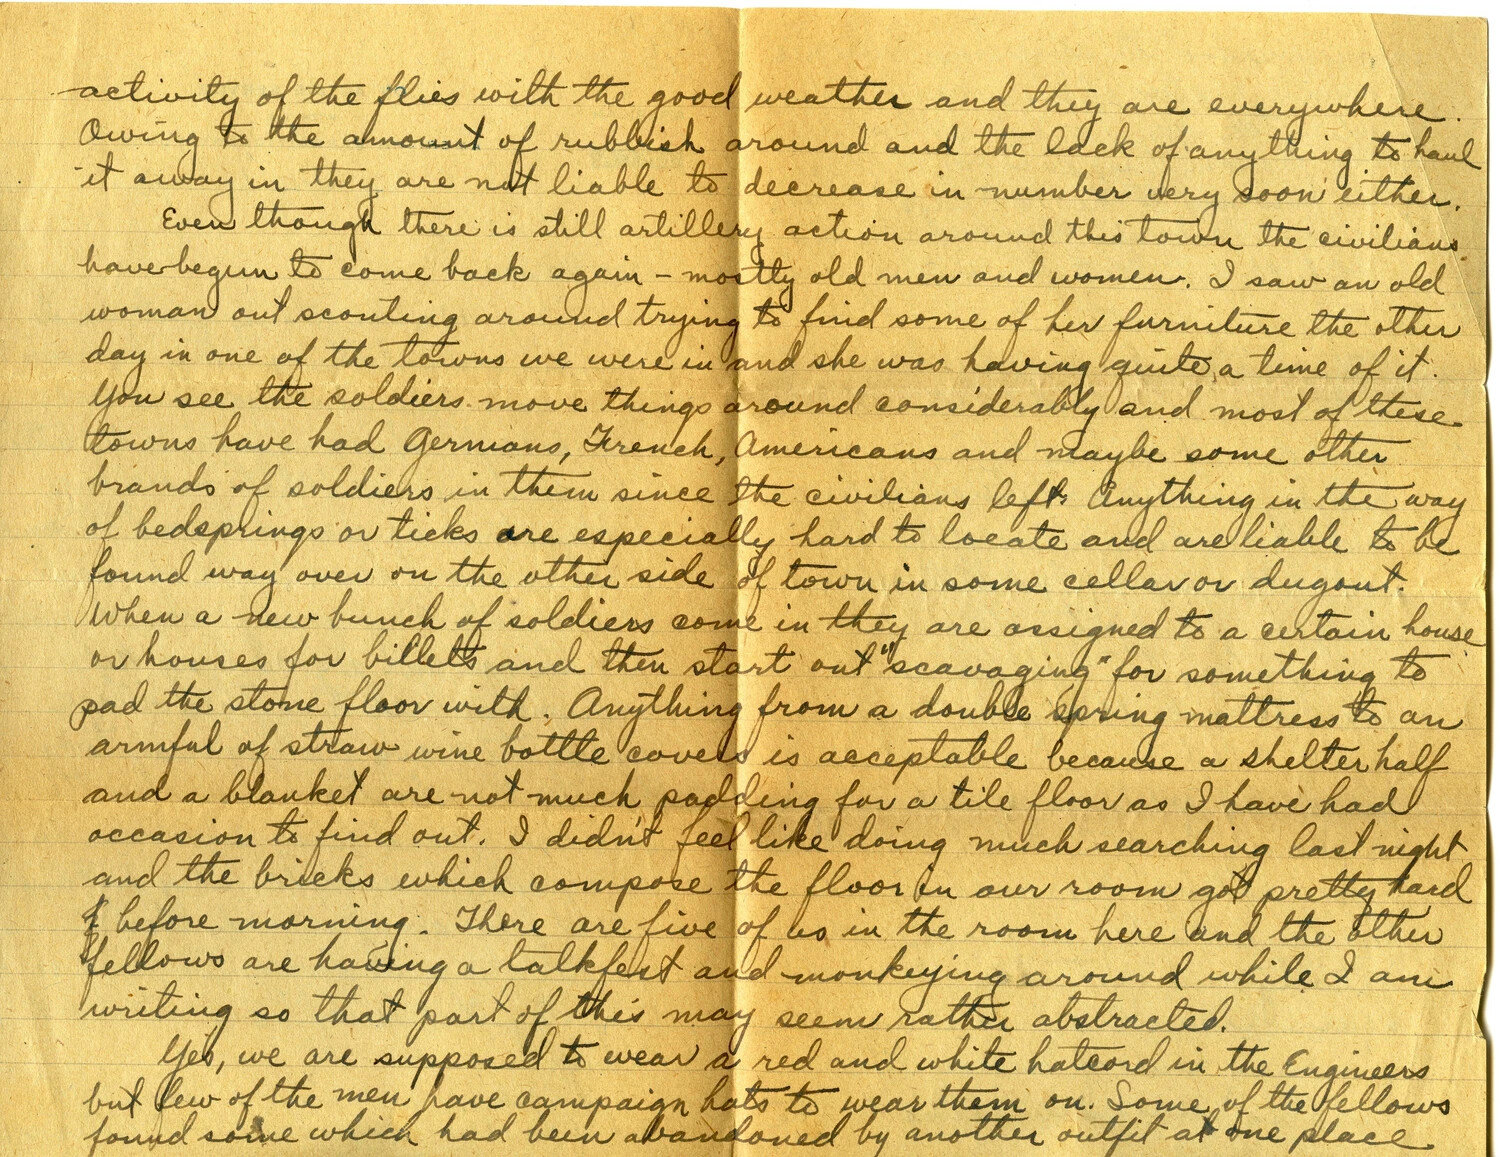 activity of the flies with the good weather and they are everywhere.
Owing to the amount of rubbish around and the lack of anything to haul
it away in they are not liable to decrease in number very soon either.
Even though there is still artillery action around this town the civilians
have begun to come back again - mostly old men and women. I saw an old
woman out scouting around trying to find some of her furniture the other
day in one of the towns we were in and she was having quite a time of it.
You see the soldiers move things around considerably and most of these
towns have had Germans, French, Americans and maybe some other
brands of soldiers in them since the civilians left. Anything in the way
of bedsprings or ticks are especially hard to locate and are liable to be
found way over on the other side of town in some cellar or dugout.
When a new bunch of soldiers come in they are assigned to a certain house
or houses for billets and then start out "scavaging" for something to
pad the stone floor with. Anything from a double spring mattress to an
armful of straw wine bottle covers is acceptable because a shelter half
and a blanket are not much padding for a tile floor as I have had
occasion to find out. I didn't feel like doing much searching last night
and the bricks which compose the floor in our room got pretty hard
before morning. There are five of us in the room here and the other
fellows are having a talkfest and monkeying around while I am
writing so that part of this may seem rather abstracted.
Yes, we are supposed to wear a red and white hatcord in the Engineers
but few of the men have campaign hats to wear them on. Some of the fellows
found some which had been abandoned by another outfit at one place